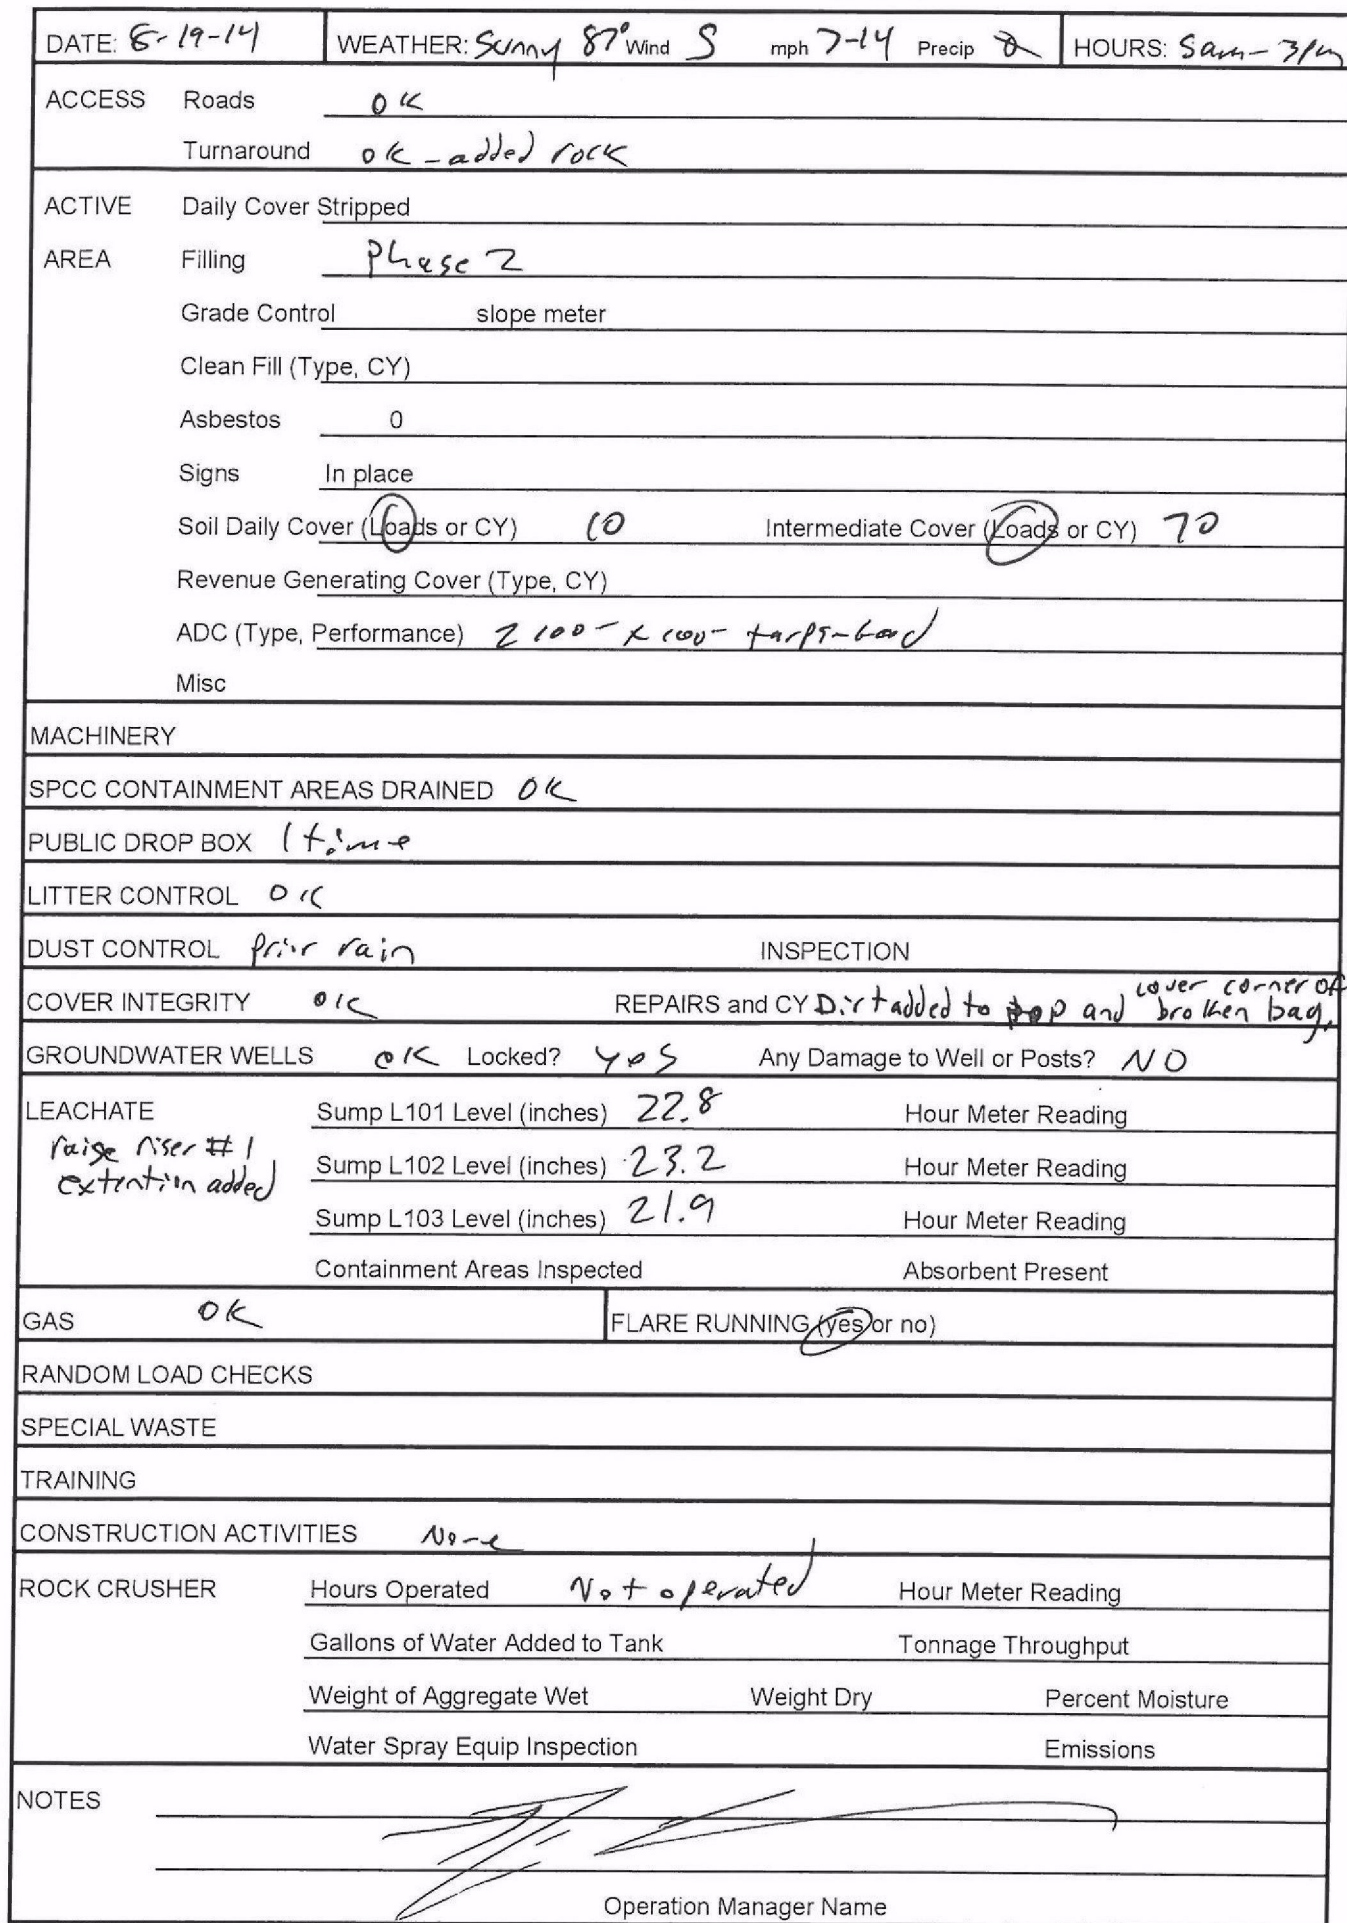 DATE: 8-19-14 WEATHER: Sunny 87° Wind S mph 7-14 Precip 0 HOURS: 5am - 3pm
ACCESS Roads OK
Turnaround OK - added rock
ACTIVE Daily Cover Stripped
AREA Filling Phase 2
Grade Control slope meter
Clean Fill (Type, CY)
Asbestos 0
Signs In place
Soil Daily Cover (Loads or CY) 10 Intermediate Cover (Loads or CY) 70
Revenue Generating Cover (Type, CY)
ADC (Type, Performance) 2 100- x 100- tarps-Good
Misc
MACHINERY
SPCC CONTAINMENT AREAS DRAINED OK
PUBLIC DROP BOX 1 time
LITTER CONTROL OK
DUST CONTROL Prior rain INSPECTION
COVER INTEGRITY OK REPAIRS and CY Dirt added to and cover corner of broken bag,
GROUNDWATER WELLS OK Locked? Yes Any Damage to Well or Posts? NO
LEACHATE Sump L101 Level (inches) 22.8 Hour Meter Reading
raise riser #1
extention added
Sump L102 Level (inches) 23.2 Hour Meter Reading
Sump L103 Level (inches) 21.9 Hour Meter Reading
Containment Areas Inspected Absorbent Present
GAS OK FLARE RUNNING (yes or no)
RANDOM LOAD CHECKS
SPECIAL WASTE
TRAINING
CONSTRUCTION ACTIVITIES None
ROCK CRUSHER Hours Operated Not operated Hour Meter Reading
Gallons of Water Added to Tank Tonnage Throughput
Weight of Aggregate Wet Weight Dry Percent Moisture
Water Spray Equip Inspection Emissions
NOTES
Operation Manager Name